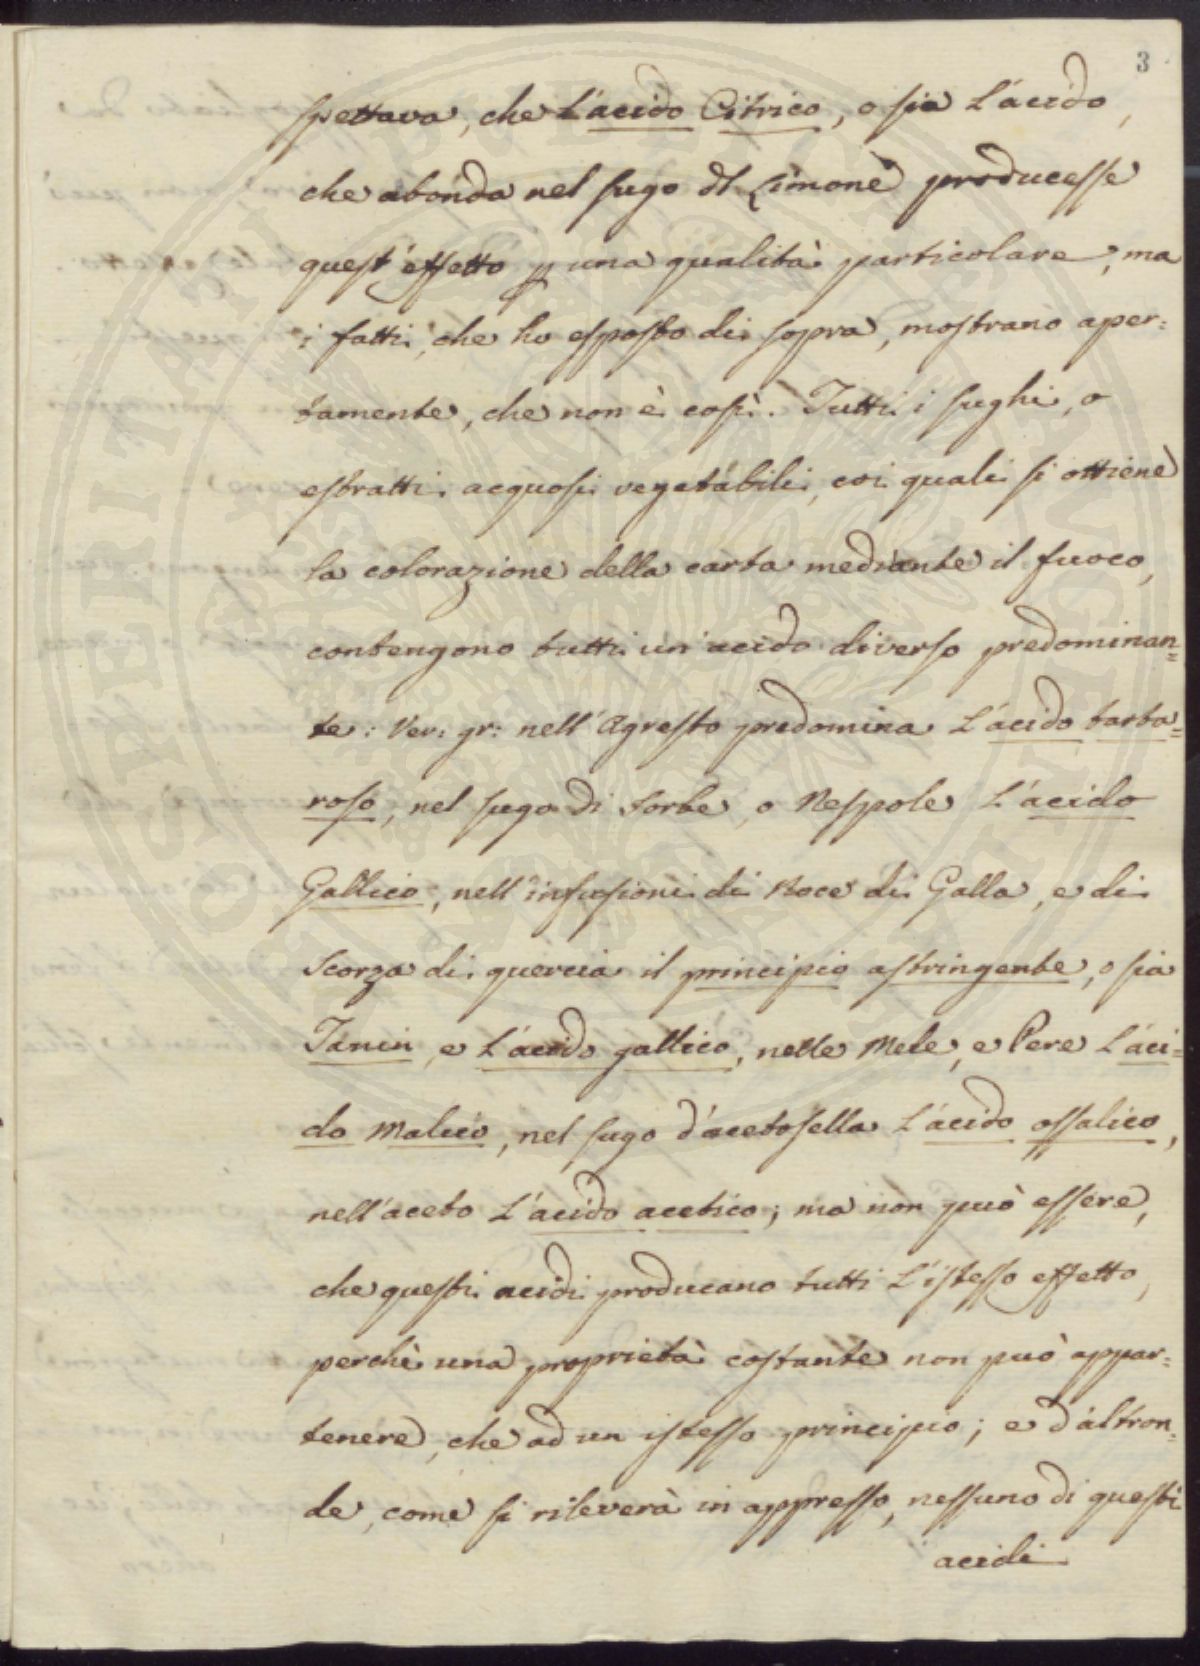 3
spettava, che L'acido Citrico, o sia L'acido,
che abonda nel sugo di Limone producesse
quest'effetto p una qualità particolare, ma
i fatti, che ho esposto di sopra, mostrano aper=
tamente, che non è così. Tutti i sughi, o
estratti acquosi vegetabili, coi quali si ottiene
la colorazione della carta mediante il fuoco,
contengono tutti un acido diverso predominan=
te: Ver: gr: nell'Agresto predomina L'acido tarta=
roso, nel sugo di Sorbe, o Nespole L'acido
Gallico, nell'infusioni di Noce di Galla, e di
Scorza di quercia il principio astringente, o sia
Tanin, e L'acido gallico, nelle Mele, e Pere L'aci=
do Malico, nel sugo d'acetosella L'acido ossalico,
nell'aceto L'acido acetico; ma non può essere,
che questi acidi producano tutti L'istesso effetto,
perchè una proprietà costante non può appar=
tenere, che ad un istesso principio; e d'altron=
de, come si rileverà in appresso, nessuno di questi
acidi